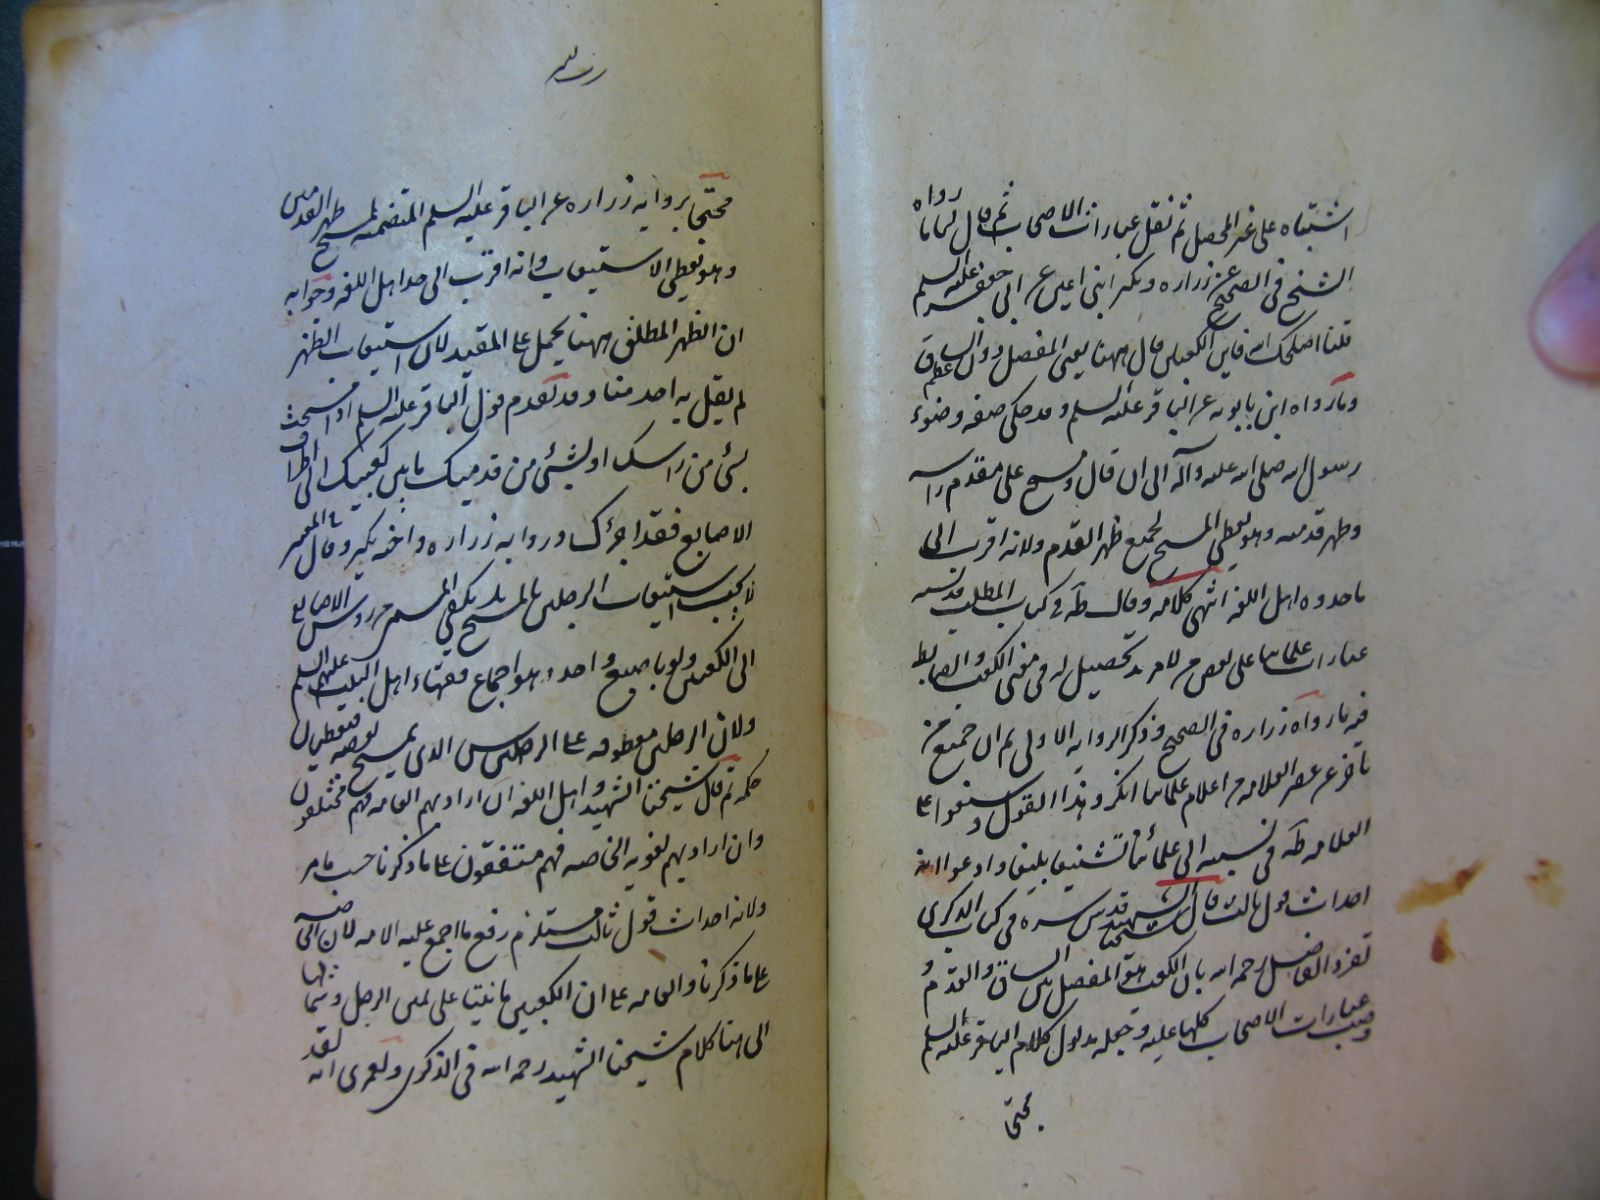 اشتباه على غير المحصل ثم نقل عبارات الاصحاب ثم قال لنا ما رواه
الشيخ فى الصحيح عن زراره وبكير ابنى اعين عن ابى جعفر عليه السلم
قلنا اصلحك الله فاين الكعبان قال ههنا يعنى المفصل دون عظم الساق
وما رواه ابن بابويه عن الباقر عليه السلم وقد حكى صفه وضوء
رسول الله صلى الله عليه وآله الى ان قال ومسح على مقدم راسه
وظهر قدميه وهو يعطى المسح لجميع ظهر القدم ولانه اقرب الى
ما حدوه اهل اللغه انتهى كلامه وقال طه فى كتاب المطلب قدس سره
عبارات علمائنا على بعض من لا مزيد تحصيل له فى معنى الكعب والضابط
فيه ما رواه زراره فى الصحيح وذكر الروايه الاولى ثم ان جميع من
تاخر عن عصر العلامه من اعلام علمائنا انكروا هذا القول وشنعوا على
العلامه طه فى نسبته الى علمائنا تشنيعا بليغا وادعوا انه
احداث قول ثالث قال شيخنا الشهيد قدس سره فى كتاب الذكرى
تفرد الفاضل رحمه الله بان الكعب هو المفصل بين الساق والقدم و
صب عبارات الاصحاب كلها عليه وجعله مدلول كلام الباقر عليه السلم
محتجا
محتجا بروايه زراره عن الباقر عليه السلم المتضمنه لمسح ظهر القدمين
وهو يعطى الاستيعاب وانه اقرب الى حد اهل اللغه وجوابه
ان الظهر المطلق ههنا يحمل على المقيد لان استيعاب الظهر
لم يقل به احد منا وقد تقدم قول الباقر عليه السلم اذا مسحت
بشئ من راسك او بشئ من قدميك ما بين كعبيك الى اطراف
الاصابع فقد اجزأك وروايه زراره واخيه بكير وقال فى المعتبر
لا يجب استيعاب الرجلين بالمسح بل يكفى المسمى من روس الاصابع
الى الكعبين ولو باصبع واحد وهو اجماع فقهاء اهل البيت عليهم السلم
ولان الرجلين معطوفه على الراس الذى يمسح بعضه فيعطيان
حكمه ثم قال شيخنا الشهيد واهل اللغه ان اراد بهم العامه فهم مختلفون
وان اراد بهم لغويه الخاصه فهم متفقون على ما ذكرنا حسب ما مر
ولانه احداث قول ثالث مستلزم رفع ما اجمع عليه الامه لان الخاصه
على ما ذكرنا والعامه على ان الكعبين ما نتئا على يمين الرجل وشمالها
الى هنا كلام شيخنا الشهيد رحمه الله فى الذكرى ولعمرى انه لقد